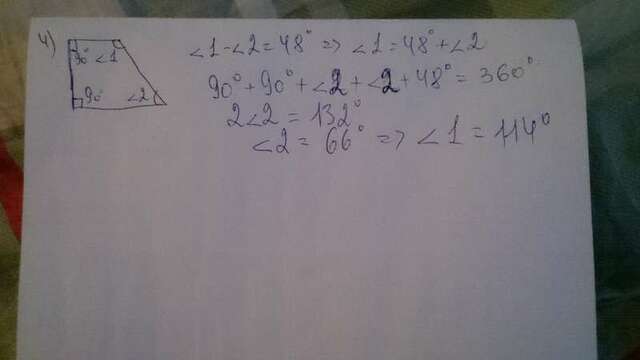 4)
90° ∠1
90° ∠2
∠1-∠2=48° => ∠1=48°+∠2
90°+90°+∠2+∠2+48°=360°
2∠2=132°
∠2=66° => ∠1=114°